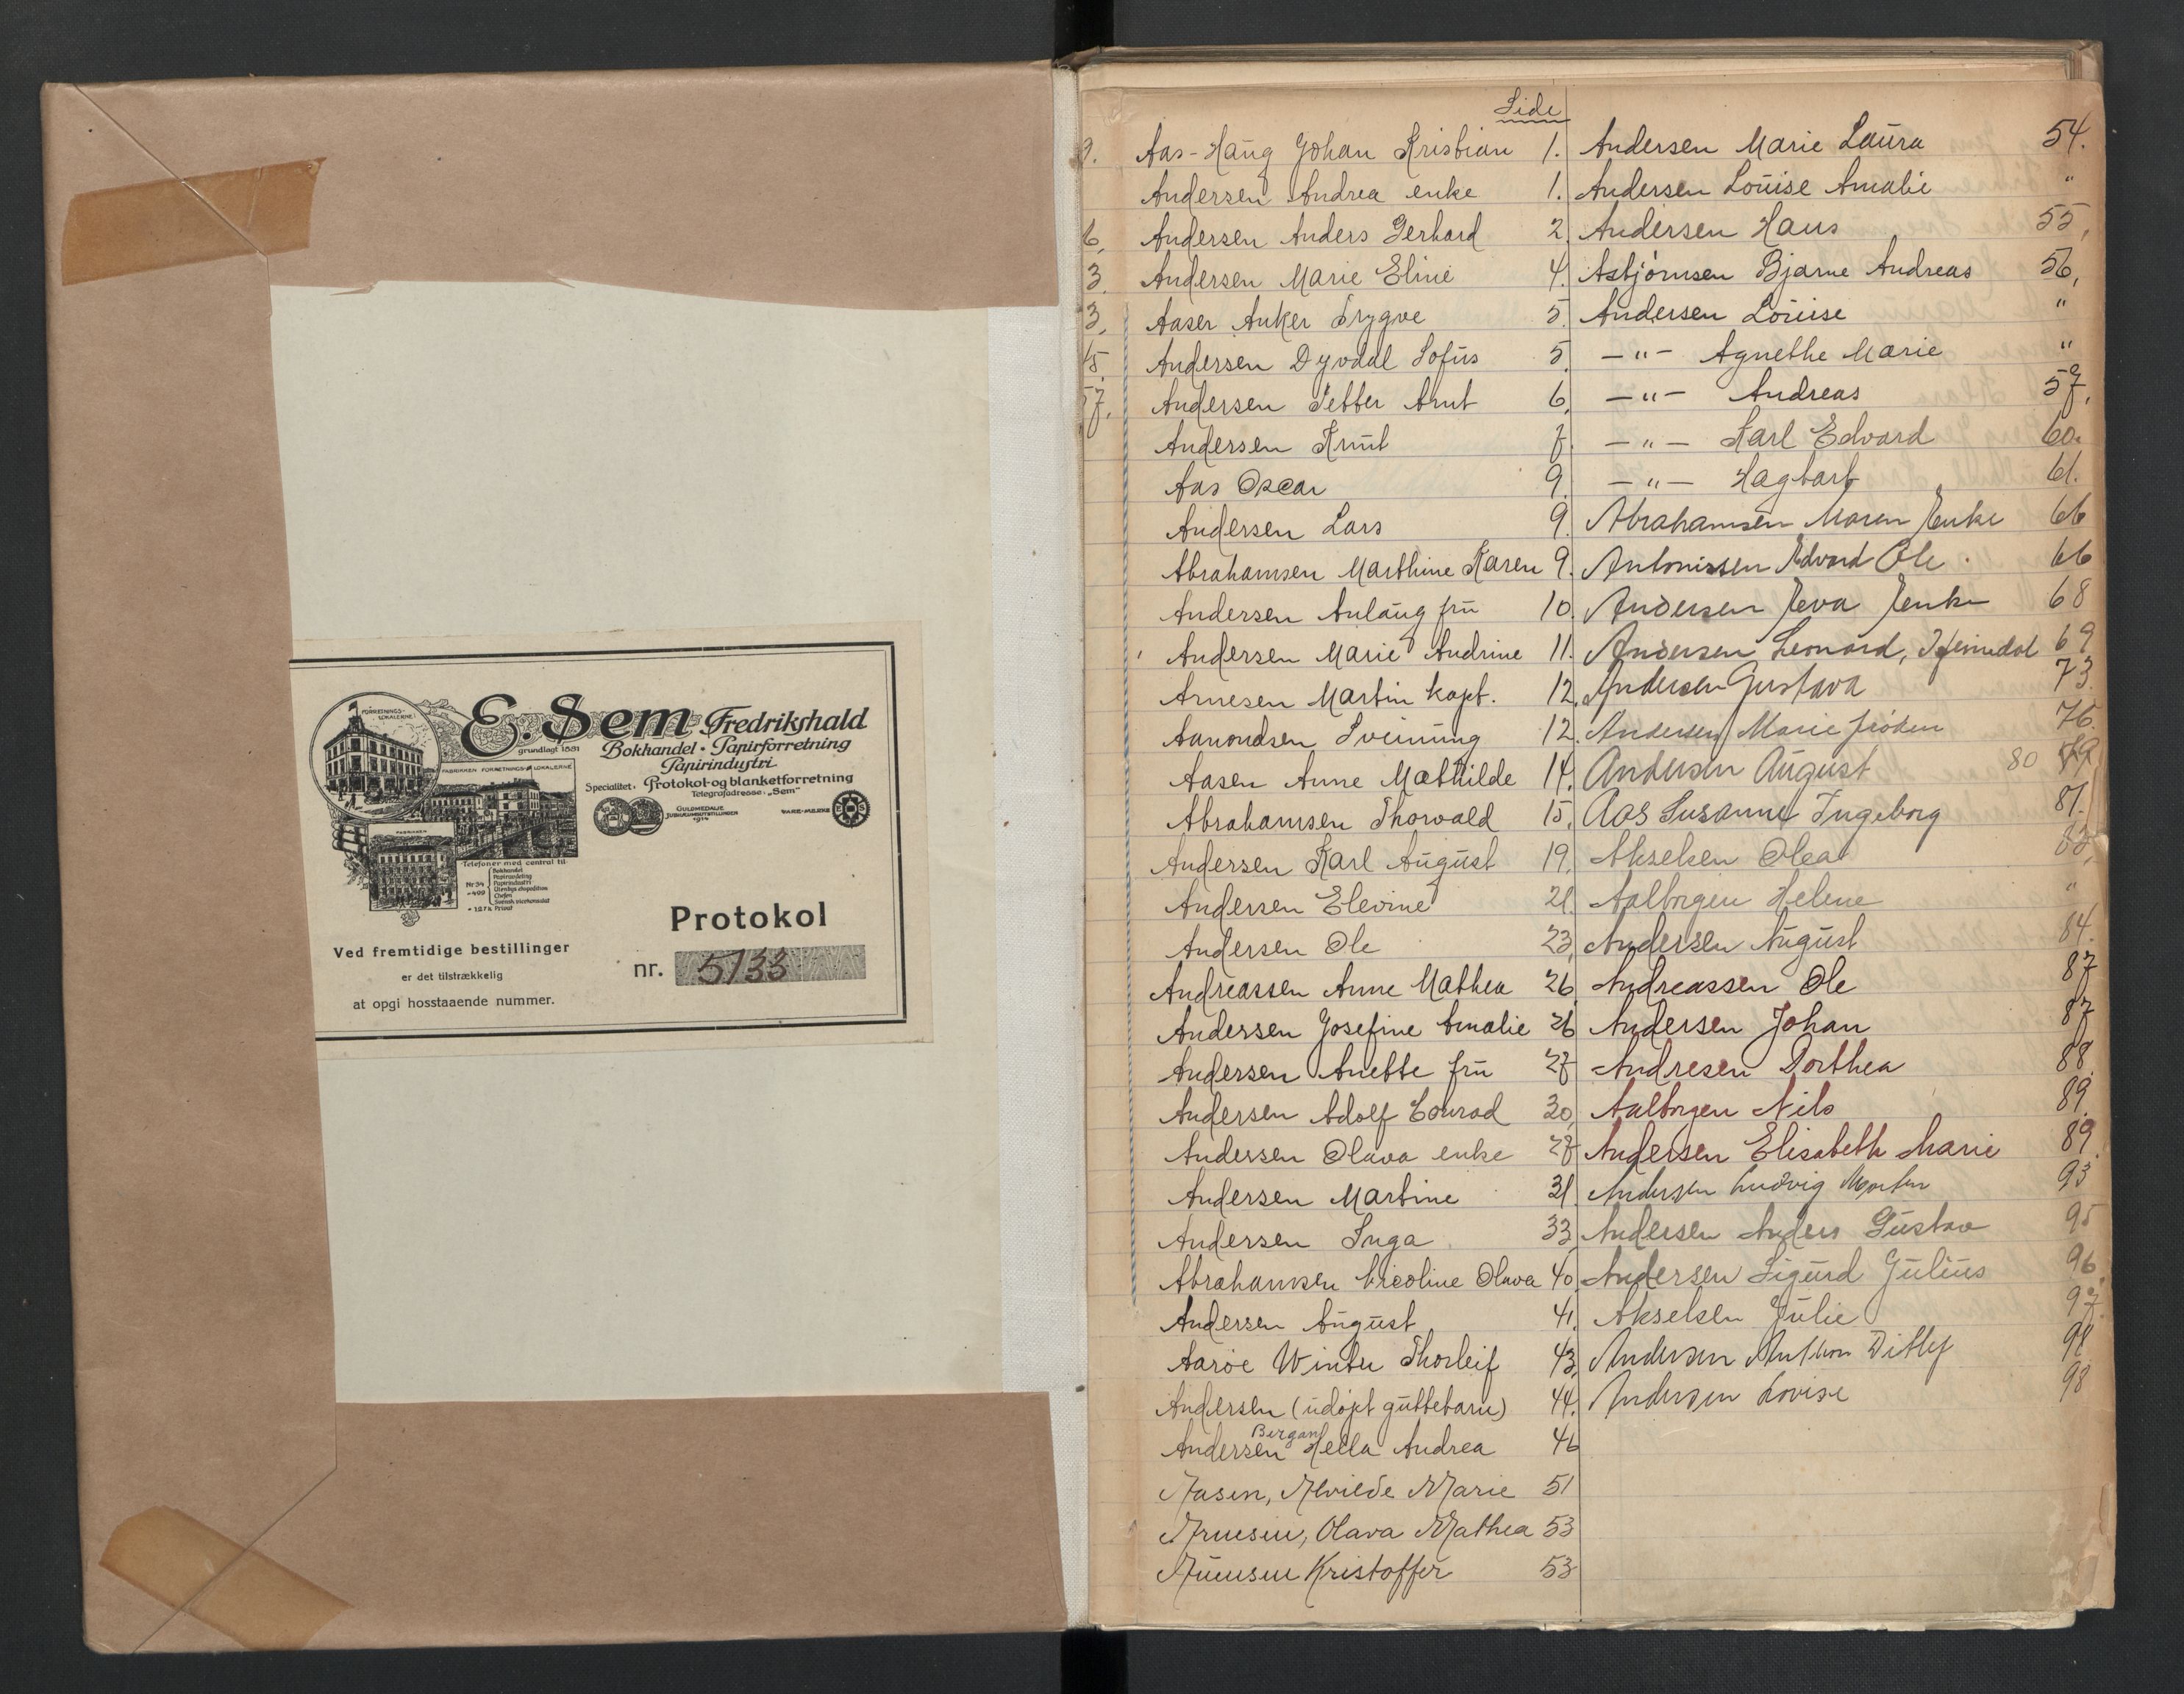 FORRETNINGS-
LOKALERNE
E. Sem Fredrikshald
grundlagt 1881
Bokhandel · Papirforretning
Papirindustri
FABRIKKEN FORRETNINGS-LOKALERNE
Specialitet: Protokol-og blanketforretning
Telegrafadresse: „Sem"
GULDMEDALJE
JUBILÆUMSUTSTILLINGEN
1914
VARE-MERKE
FABRIKKEN
Telefoner med central til
Bokhandel
Papiravdeling
Nr 34 Papirindustri
- 499
Chefen
- 127k Privat
Protokol
Ved fremtidige bestillinger
er det tilstrækkelig
at opgi hosstaaende nummer.
nr. 5133
Side
Aas-Haug Johan Kristian 1.
Andersen Andrea enke 1.
6, Andersen Anders Gerhard 2.
3. Andersen Marie Eline 4.
3, Aaser Anker Trygve 5.
15. Andersen Dyvdal Sofus 5.
57, Andersen Petter Arnt 6,
Andersen Knut 7.
Aas Oscar 9.
Andersen Lars 9.
Abrahamsen Marthine Karen 9.
Andersen Anlaug fru 10.
Andersen Marie Andrine 11.
Arnesen Martin kapt. 12.
Aamondsen Sveinung 12.
Aasen Anne Mathilde 14.
Abrahamsen Thorvald 15.
Andersen Karl August 19.
Andersen Elevine 21.
Andersen Ole 23,
Andreassen Anne Mathea 26
Andersen Josefine Amalie 26
Andersen Anette fru 27
Andersen Adolf Conrad 30,
Andersen Olava enke 27
Andersen Martine 31.
Andersen Inga 33
Abrahamsen Nicoline Olava 40.
Andersen August 41.
Aarøe Winter Thorleif 43.
Andersen (udøpt guttebarn) 44.
Bergan
Andersen Hella Andrea 46
Aasen, Alvilde Marie 51
Arnesen, Olava Mathea 53
Kristoffer 53
Andersen Marie Laura 54.
Andersen Louise Amalie "
Andersen Hans 55,
Asbjørnsen Bjarne Andreas 56,
Andersen Louise "
—"— Agnethe Marie "
—"— Andreas 57,
—"— Karl Edvard 60.
—"— Hagbart 61.
Abrahamsen Maren Enke 66
Antonissen Edvard Ole 66
Andersen Eeva Enke 68
Andersen Leonard, Heimdal 69
Andersen Gustava 73.
Andersen Marie frøken 76.
Andersen August 80 79
Aas Susanne Ingeborg 81.
Akselsen Olea 83,
Aalborgen Helene "
Andersen August 84.
Andreassen Ole 87
Andersen Johan 87
Andresen Dorthea 88.
Aalborgen Nils 89.
Andersen Elisabeth Marie 89.
Andersen Ludvig Morten 93
Andersen Anders Gustav 95
Andersen Sigurd Julius 96.
Akselsen Julie 97.
Andersen Anthon Ditlef 98
Andersen Lovise 98